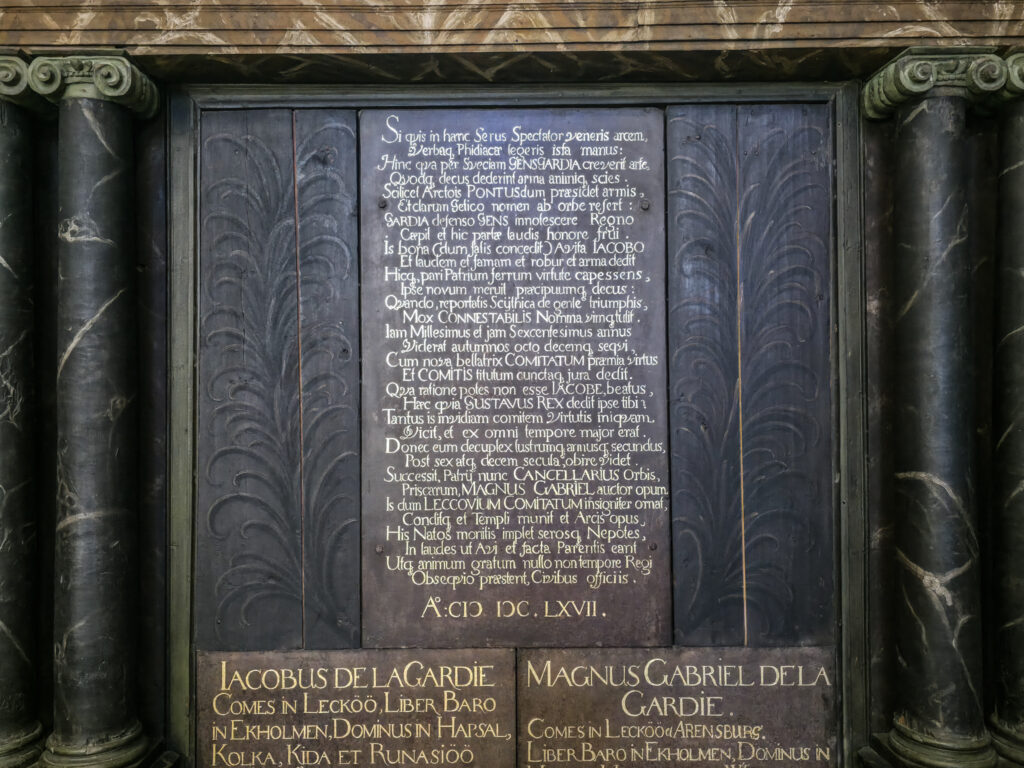 Si quis in hanc Serus Spectator veneris arcem,
Verbaq, Phidiacæ legeris ista manus:
Hinc qua per Sveciam GENS GARDIA creverit arte,
Quodq, decus dederint arma animiq, scies.
Scilicet Arctois PONTUS dum præsidet armis,
Et clarum Getico nomen ab orbe refert:
GARDIA defenso GENS innotescere Regno
Cæpit et hic partæ laudis honore frui.
Is bona (dum satis concedit) Avita IACOBO
Et laudem et famam et robur et arma dedit
Hicq, pari Patrium ferrum virtute capessens,
Ipse novum meruit præcipuumq, decus:
Quando, reportatis Scÿthica de gente triumphis,
Mox CONNESTABILIS Nomina vinq, tulit.
Iam Millesimus et jam Sexcentesimus annus
Viderat autumnos octo decemq, sequi,
Cum nova bellatrix COMITATUM præmia virtus
Et COMITIS titulum cunctaq, jura dedit.
Qva ratione potes non esse IACOBE, beatus,
Hæc quia GUSTAVUS REX dedit ipse tibi?
Tantus is invidiam comitem Virtutis iniquam,
Vicit, et ex omni tempore major erat.
Donec eum decuplex lustrumq, annusq, secundus,
Post sex atq, decem secula, obire Videt
Successit, Patrÿ nunc CANCELLARIUS Orbis,
Priscarum, MAGNUS GABRIEL auctor opum.
Is dum LECCOVIUM COMITATUM insigniter ornat,
Conditq, et Templi munit et Arcis opus,
His Natos monitis implet serosq, Nepotes,
In laudes ut Avi et facta Parentis eant
Utq, animum gratum nullo non tempore Regi
Obsequio præstent, Civibus officiis.
A̅: CIↃ IↃC. LXVII.
IACOBUS DE LA GARDIE
COMES IN LECKÖÖ, LIBER BARO
IN EKHOLMEN, DOMINUS IN HAPSAL,
KOLKA, KIDA ET RUNASIÖÖ
MAGNUS GABRIEL DE LA
GARDIE.
COMES IN LECKÖÖ et ARENSBURG.
LIBER BARO IN EKHOLMEN, DOMINUS IN